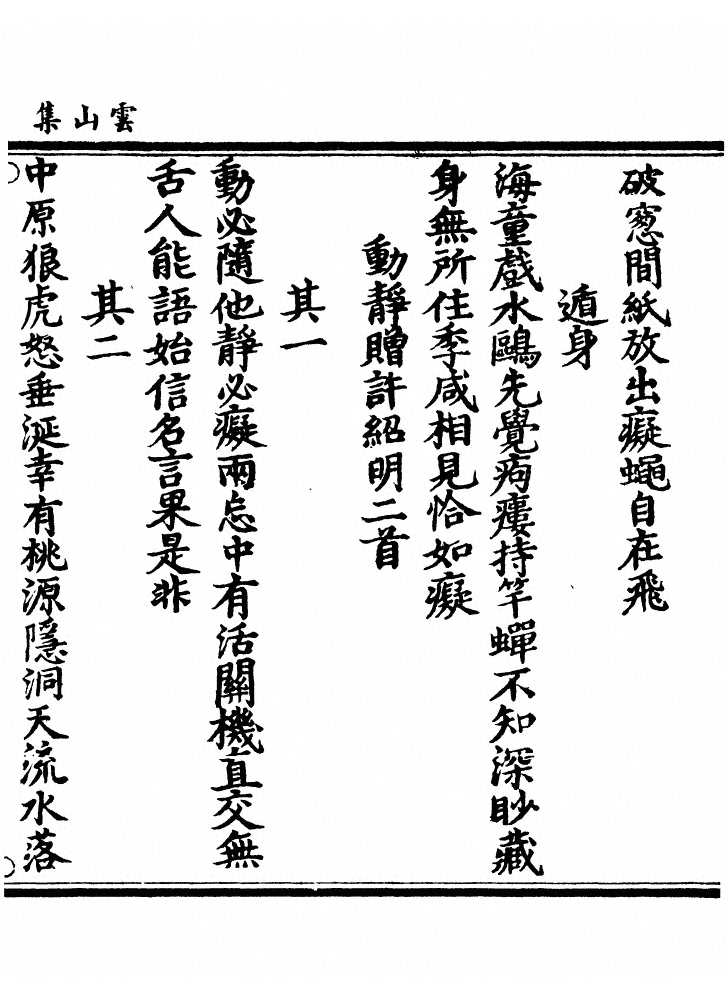 雲山集
破窓間紙放出癡蠅自在飛
遁身
海童戲水鷗先覺痀瘻持竿蟬不知深眇藏
身無所住季咸相見恰如癡
動靜贈許紹明二首
其一
動必隨他靜必癡兩忘中有活關機直交無
舌人能語始信名言果是非
其二
中原狼虎怒垂涎幸有桃源隱洞天流水落